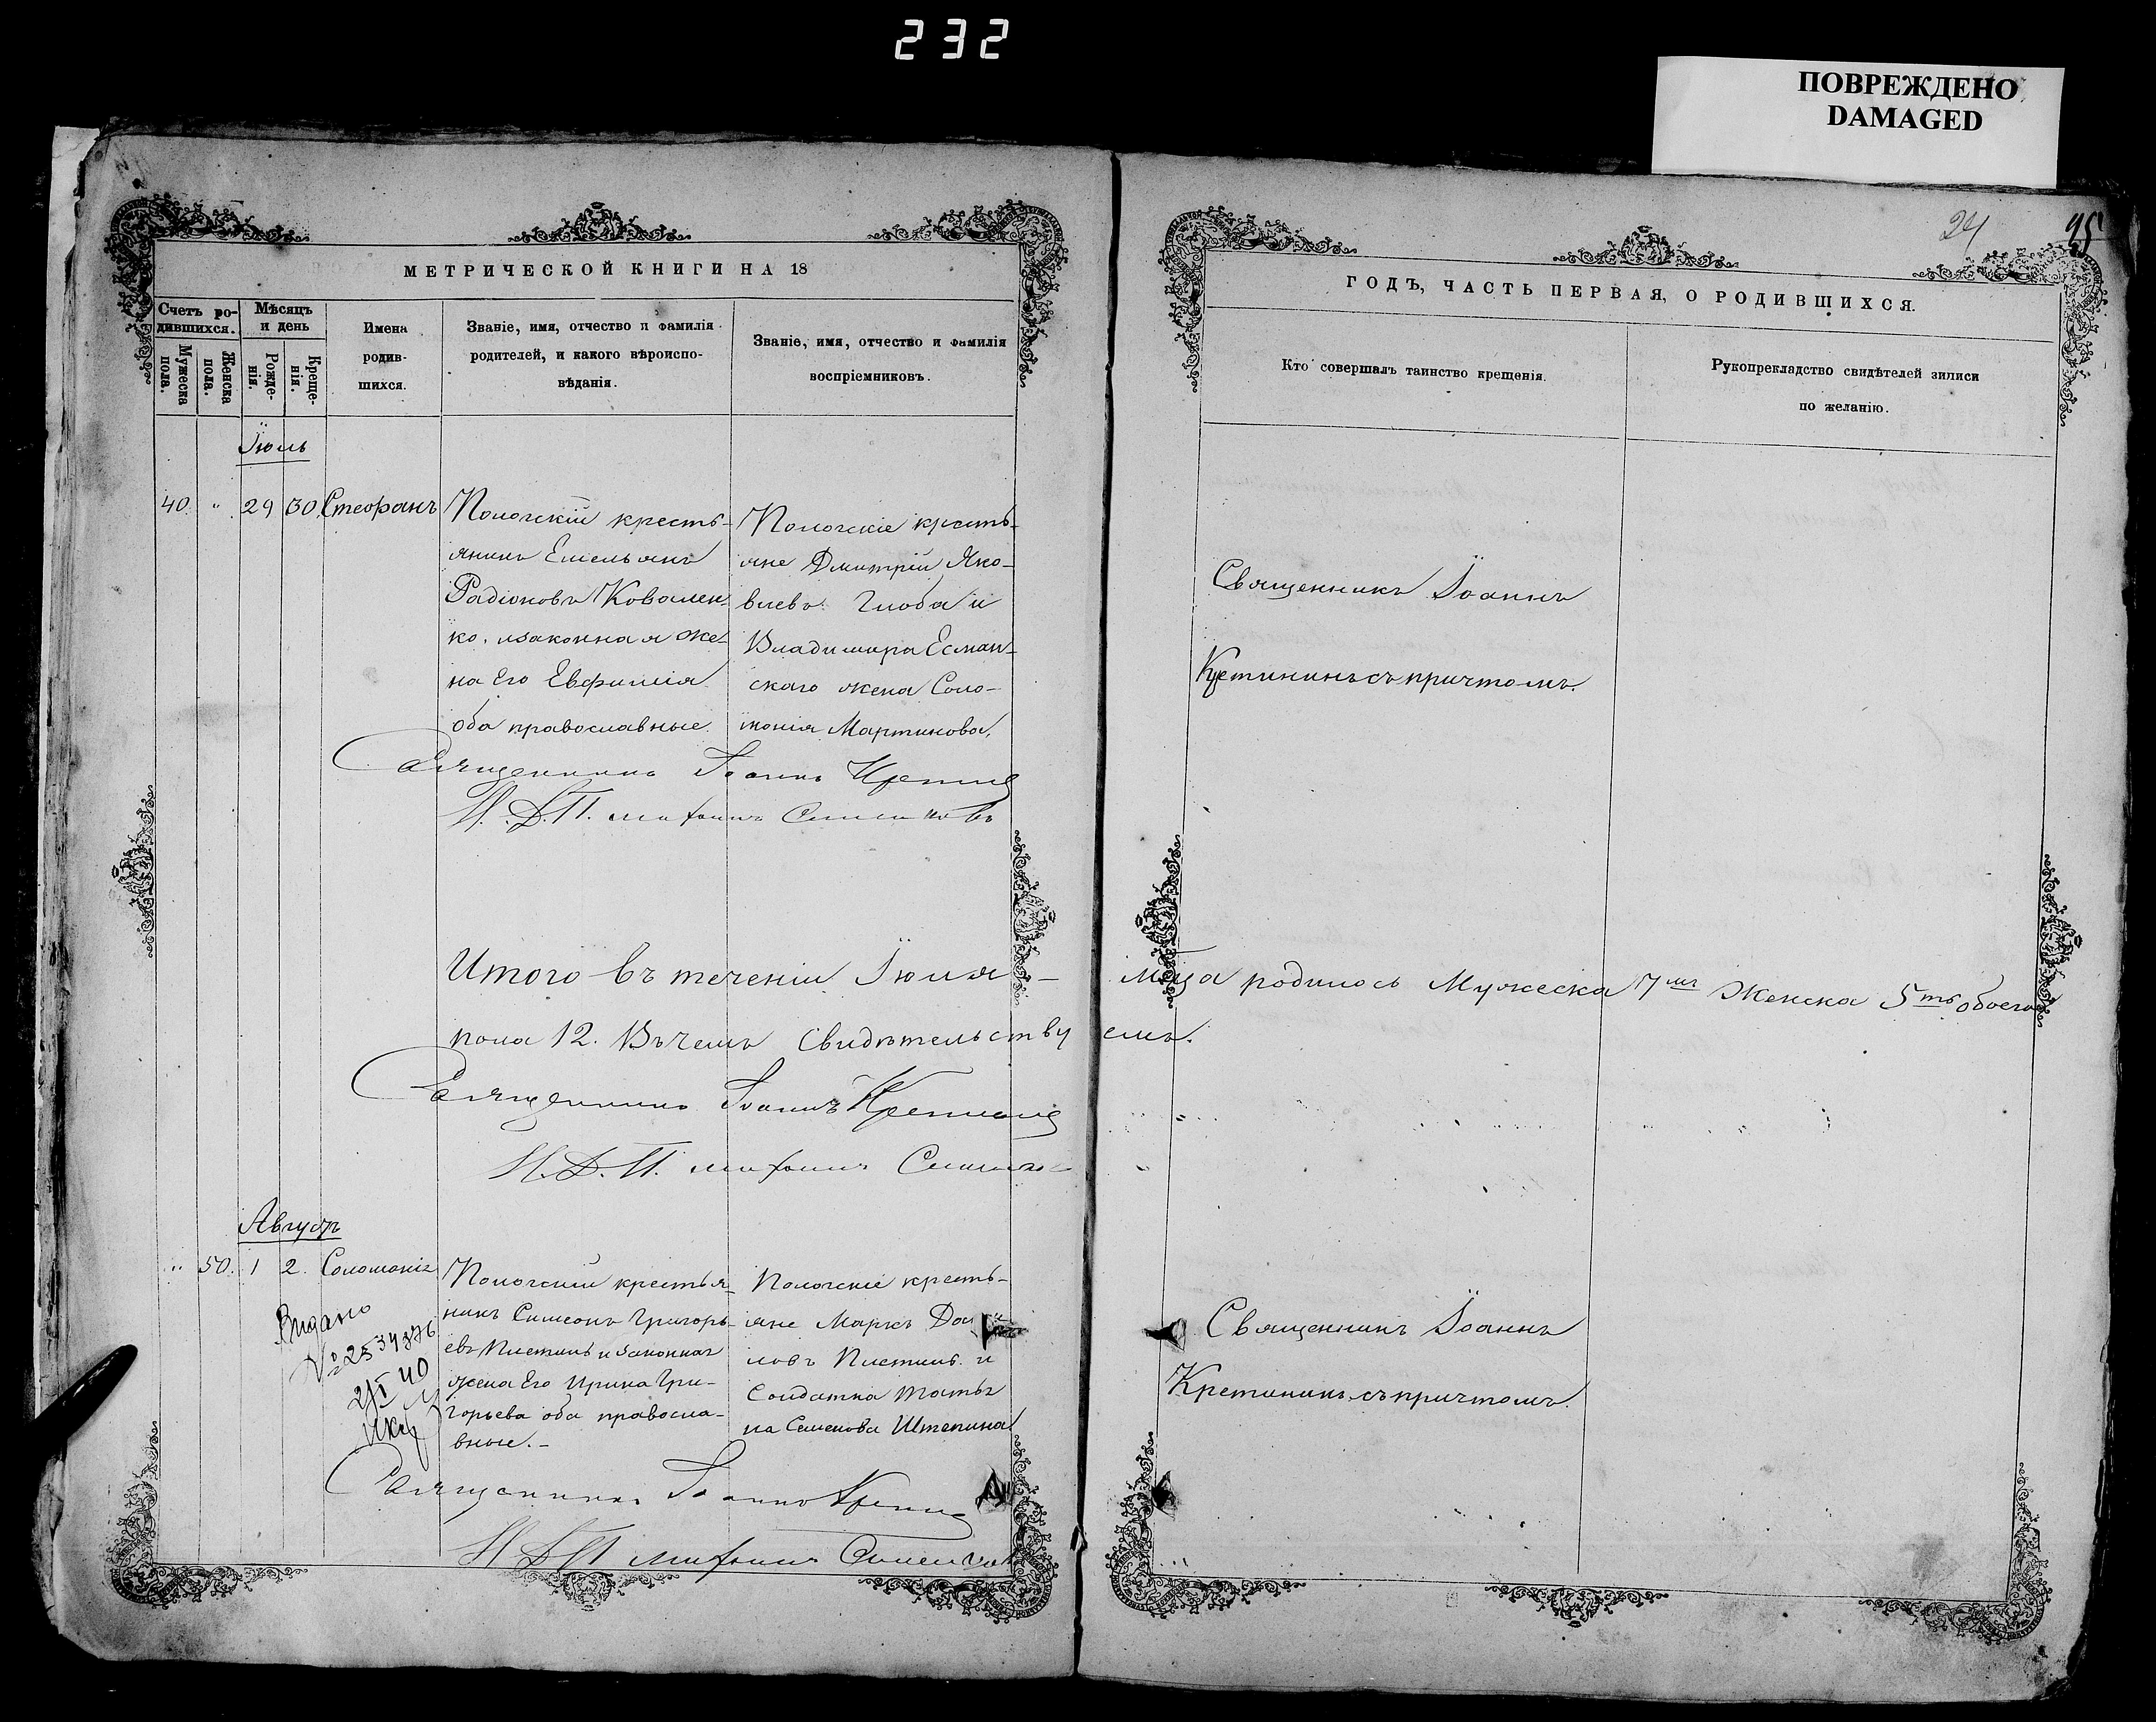 232
ПОВРЕЖДЕНО
DAMAGED
24
25
МЕТРИЧЕСКОЙ КНИГИ НА 18
Счетъ ро-
дившихся.
Мужеска
пола.
Женска
пола.
Мѣсяцъ
и день
Рожде-
нія.
Креще-
нія.
Имена
родив-
шихся.
Званіе, имя, отчество и фамилія
родителей, и какого вѣроиспо-
вѣданія.
Званіе, имя, отчество и фамилія
воспріемниковъ.
ГОДЪ, ЧАСТЬ ПЕРВАЯ, О РОДИВШИХСЯ.
Кто совершалъ таинство крещенія.
Рукопрекладство свидѣтелей зиписи
по желанію.
Іюль
40. " 29 30 Стефанъ
Пологскій кресть-
янинъ Емельянъ
Радіоновъ Ковален-
ко, изаконная же-
на Его Евфимія
оба православные.
Пологскіе кресть-
яне Дмитрій Яко-
влевъ Глоба и
Владимира Есман-
ского жена Соло-
монія Мартинова.
Священникъ Іоаннъ
Кретининъ съ причтомъ.
Священникъ Іоаннъ
И.Д.П.
Итого въ теченіи Іюля – мца родилось Мужеска 7мь Женска 5ть обоего
пола 12. Въ чемъ свидѣтельствуемъ.
Священникъ Іоаннъ
И.Д.П.
Августъ
" 50. 1 2. Соломонія
Пологскій крестья-
нинъ Симеонъ Григорь-
евъ Плетинь и законная
жена Его Ирина Гри-
горьева оба правосла-
вные. –
Пологскіе кресть-
яне Маркъ
ловъ Плетинь и
Солдатка Татья
на Семенова Штепина
Священникъ Іоаннъ
Кретининъ съ причтомъ.
Видано
№
40
Священникъ Іоаннъ
И.Д.П.